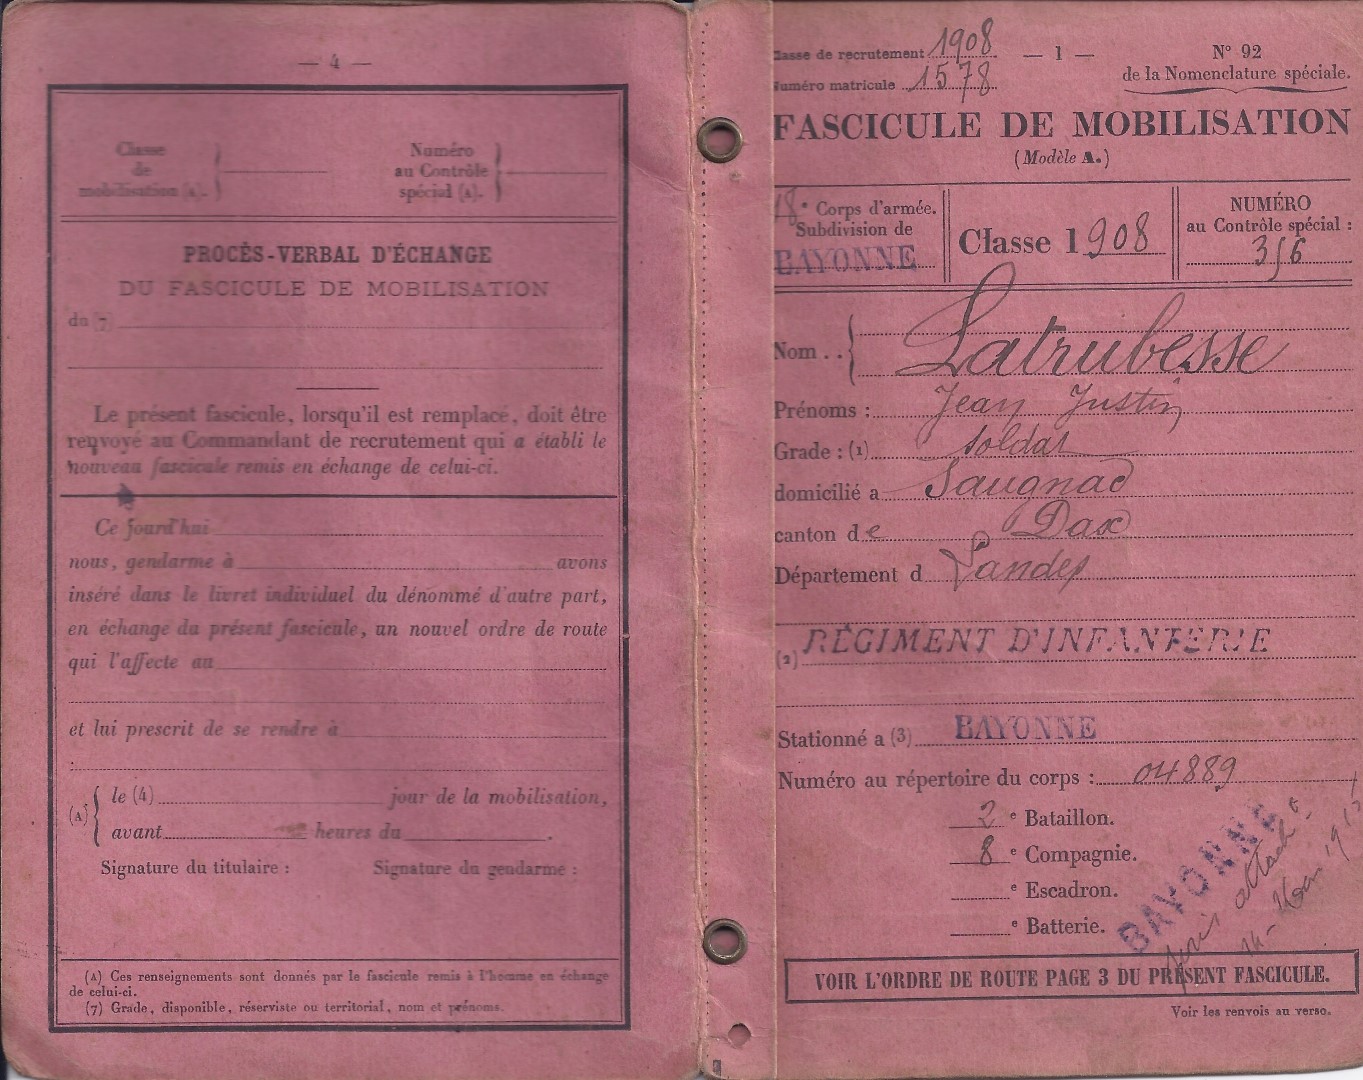 — 4 —
Classe
de
mobilisation (A).
Numéro
au Contrôle
spécial (A).
PROCÈS-VERBAL D'ÉCHANGE
DU FASCICULE DE MOBILISATION
du (7)
Le présent fascicule, lorsqu'il est remplacé, doit être
renvoyé au Commandant de recrutement qui a établi le
nouveau fascicule remis en échange de celui-ci.
Ce jourd'hui
nous, gendarme à avons
inséré dans le livret individuel du dénommé d'autre part,
en échange du présent fascicule, un nouvel ordre de route
qui l'affecte au
et lui prescrit de se rendre à
(A) { le (4) jour de la mobilisation,
avant heures du .
Signature du titulaire : Signature du gendarme :
(A) Ces renseignements sont donnés par le fascicule remis à l'homme en échange
de celui-ci.
(7) Grade, disponible, réserviste ou territorial, nom et prénoms.
Classe de recrutement 1908 — 1 — N° 92
Numéro matricule 1578 de la Nomenclature spéciale.
FASCICULE DE MOBILISATION
(Modèle A.)
18e Corps d'armée.
Subdivision de
BAYONNE
Classe 1908
NUMÉRO
au Contrôle spécial :
356
Nom . . { Latrubesse
Prénoms : Jean Justin
Grade : (1) soldat
domicilié a Saugnac
canton de Dax
Département d Landes
(2) RÉGIMENT D'INFANTERIE
Stationné a (3) BAYONNE
Numéro au répertoire du corps : 04889
2e Bataillon.
8e Compagnie.
e Escadron.
e Batterie.
BAYONNE
VOIR L'ORDRE DE ROUTE PAGE 3 DU PRÉSENT FASCICULE.
Voir les renvois au verso.